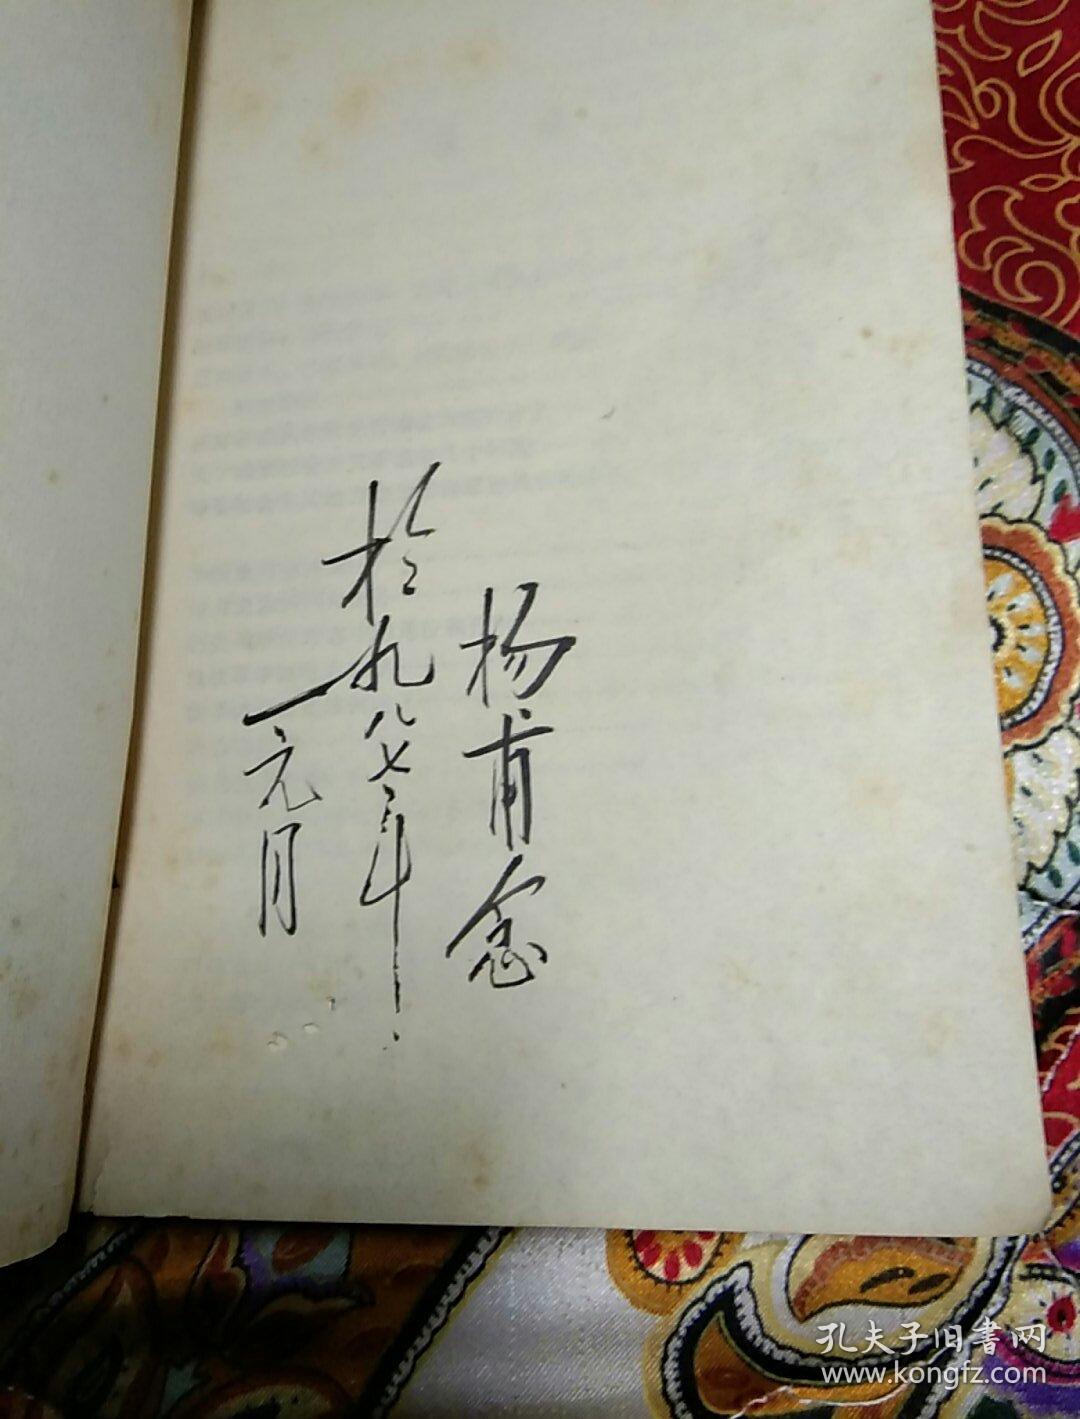 杨甫念
於九八七年
一元月
孔夫子旧書网
www.kongfz.com